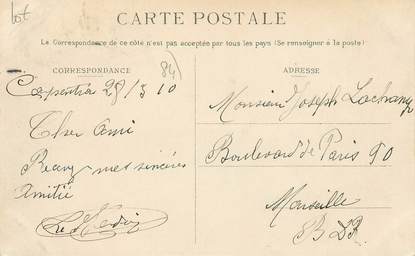 lot
CARTE POSTALE
La Correspondance de ce côté n'est pas acceptée par tous les pays (Se renseigner à la poste)
CORRESPONDANCE
84
ADRESSE
28/3 10
Cher Ami
Recevez mes sincères
Amitié
Monsieur Joseph
Boulevard de Paris 90
Marseille
B DR